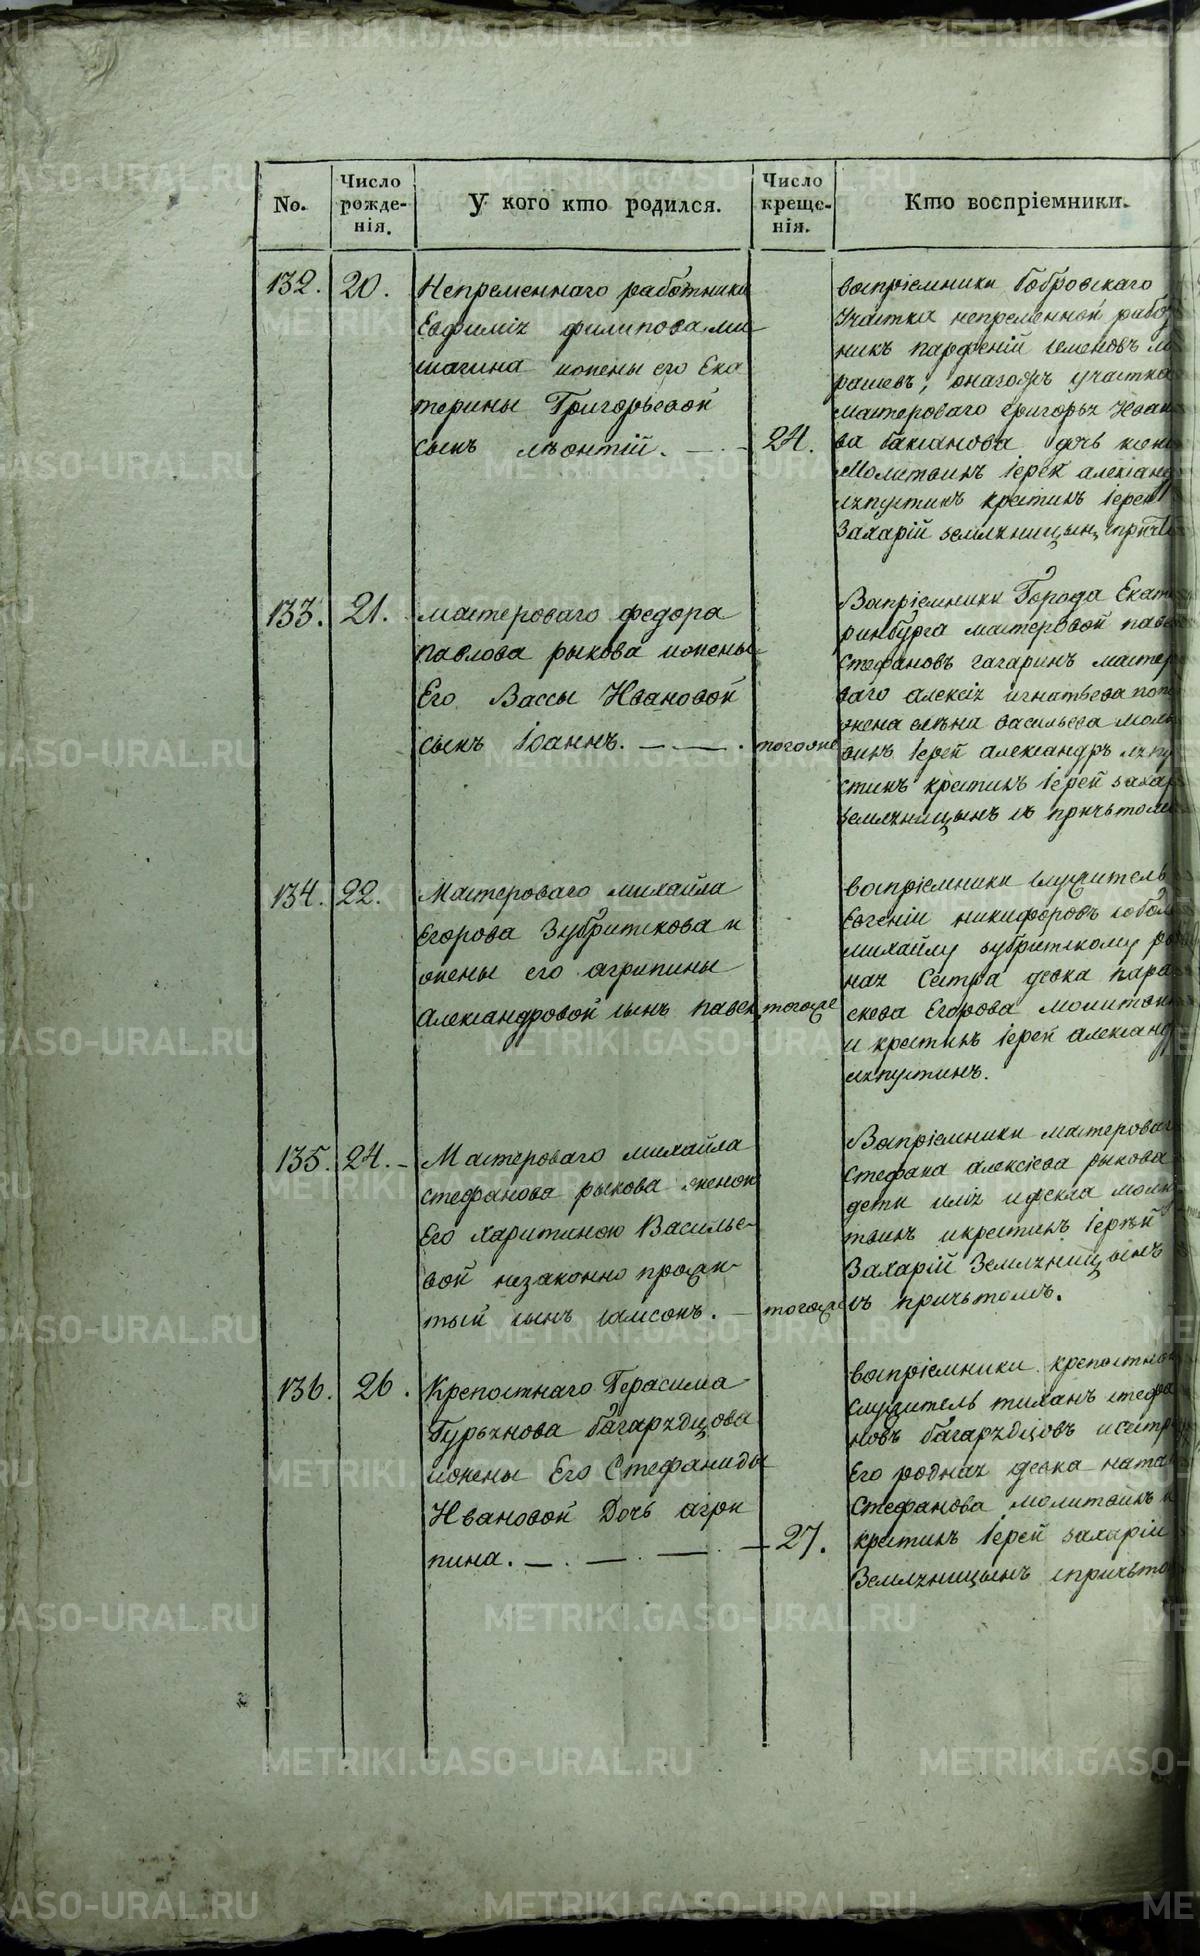 No.
Число рожде-нія.
У кого кто родился.
Число креще-нія.
Кто воспріемники.
132.
20.
Непременнаго работника
Евфимія филипова ми
шагина ижены его Ека
терины Григорьевой
сынъ леонтій.
24.
воспріемники бобровскаго
Участка непременной рабо
никъ парфеній семеновъ
рашевъ, онагожъ участка
мастероваго григорья Иван
ва бажанова дочь
Молитвилъ іерей александ
ляпустинъ крестилъ іерей
Захарій земляницынъ
133.
21.
мастероваго федора
павлова рыкова ижены
Его Вассы Ивановой
сынъ іоаннъ.
тогоже
Воспріемники Города Екат
ринбурга мастеровой паве
стефановъ гагаринъ мастер
ваго алексія игнатьева
жена елена васильева моли
вилъ іерей александръ ляпу
стинъ крестилъ іерей захар
земляницынъ съ причьтомъ
134.
22.
Мастероваго михайла
Егорова Зубритскова и
жены его агрипины
Александровой сынъ павел
тогоже
воспріемники служитель
Евгеніи никифоровъ собол
михайлу зубритскому ро
ная Сестра девка пара
скева Егорова молитвил
и крестилъ іерей александ
ляпустинъ.
135.
24.
Мастероваго михайла
стефанова рыкова женою
Его харитиною Василье-
вой незаконно прожи-
тый сынъ самсонъ.
тогоже
Воспріемники мастероваг
стефана алексіева рыкова
дети илія ифекла моли
твилъ икрестилъ іерѣй
Захарій Земляницынъ
съ причьтомъ.
136.
26.
Крепостнаго Герасима
Гурьянова багарядцова
ижены Его Стефаниды
Ивановой Дочь агри
пина.
27.
воспріемники крепостно
служитель тиханъ стефа
новъ багарядцовъ исестра
Его родная девка ната
Стефанова молитвилъ и
крестилъ іерей захаріи
Земляницынъ спричьто
METRIKI.GASO-URAL.RU